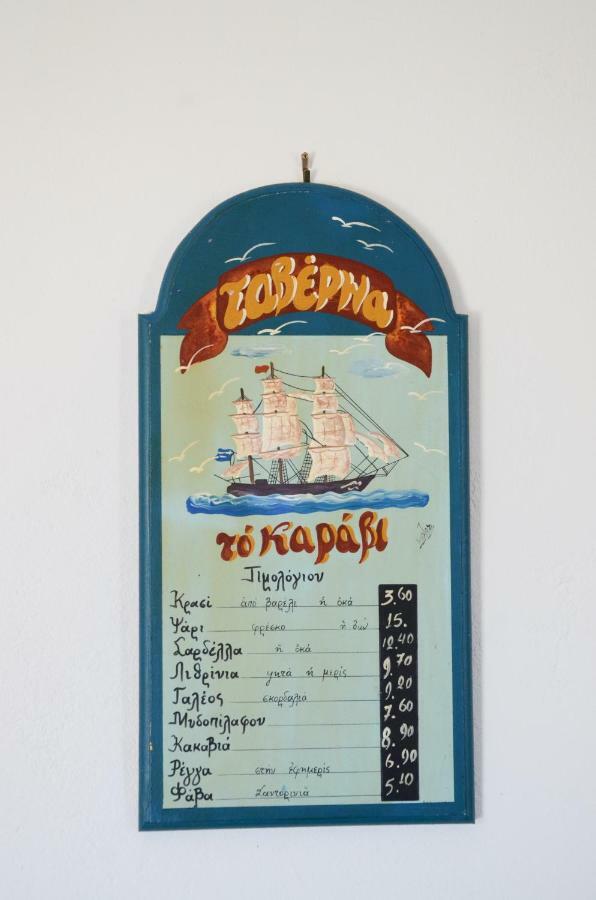 ταβέρνα
τό καράβι
Τιμολόγιον
Κρασί από βαρέλι ή οκά 3.60
Ψάρι φρέσκο 15.
Σαρδέλλα ή οκά 12.40
Λιθρίνια ψητά ή μερίς 9.70
Γαλέος σκορδαλιά 9.20
Μυδοπίλαφου 7.60
Κακαβιά 8.90
Ρέγγα στήν εφημερίς 6.90
Φάβα Σαντορινιά 5.10